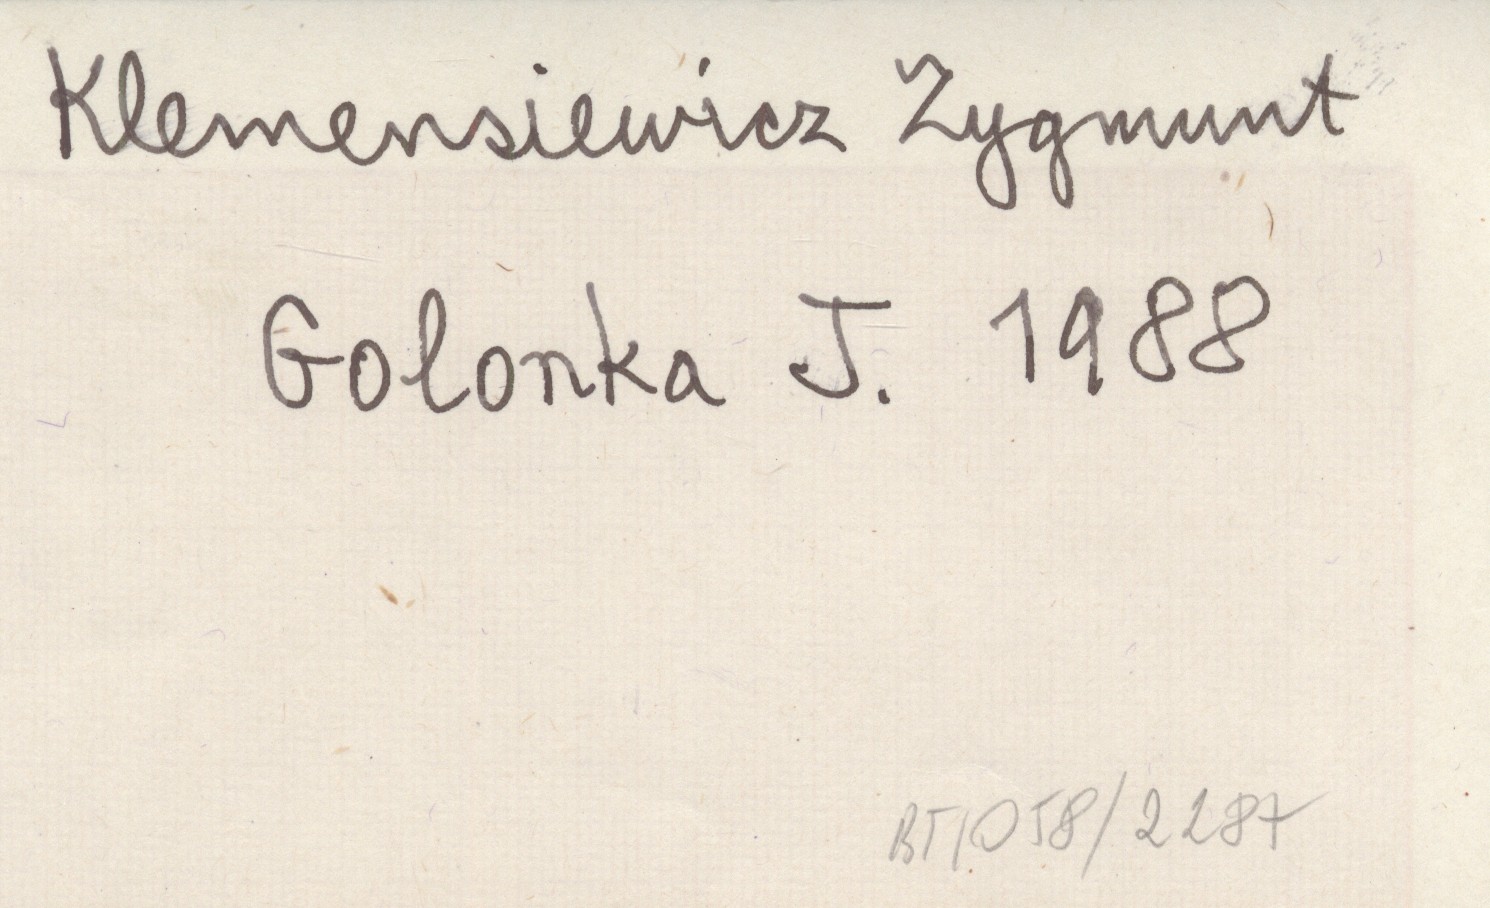 Klemensiewicz Zygmunt
Golonka J. 1988
BT/058/2287